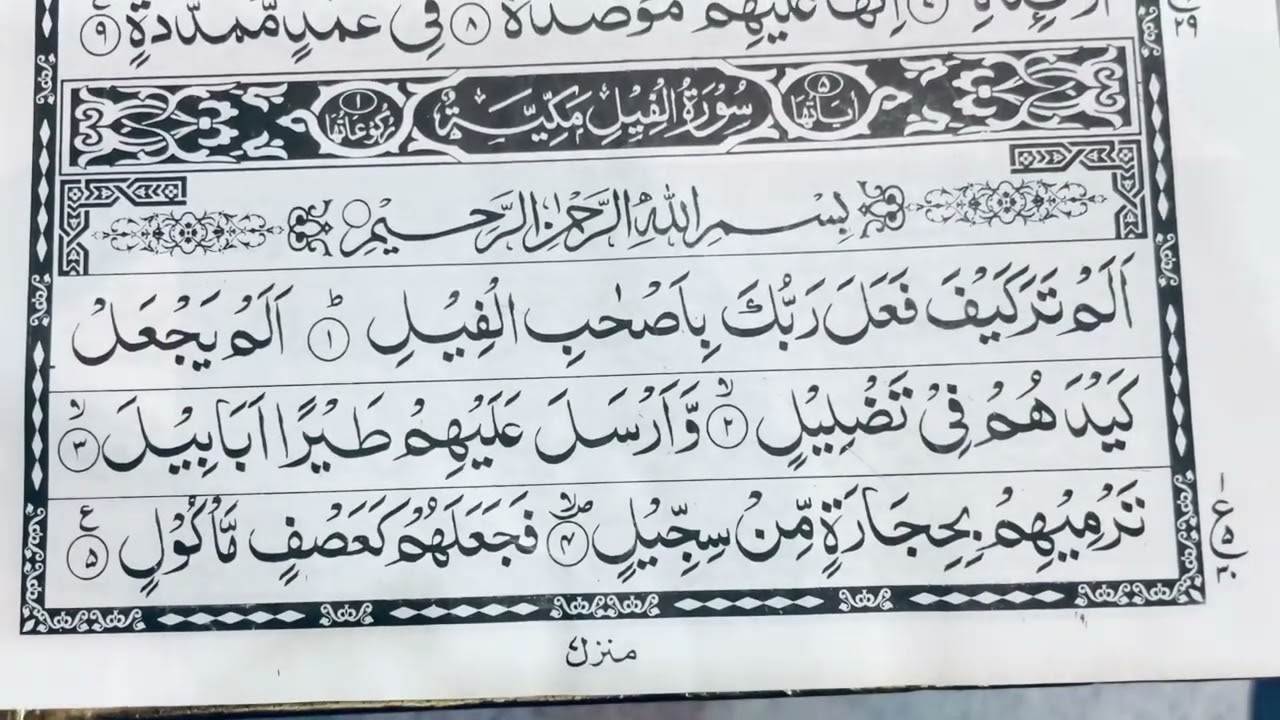 اِنَّهَا عَلَيْهِمْ مُّؤْصَدَةٌ ۝۸ فِيْ عَمَدٍ مُّمَدَّدَةٍ ۝۹
ع ۲۹
اٰيَاتُهَا ۵ سُوْرَةُ الْفِيْلِ مَكِّيَّةٌ رُكُوْعَاتُهَا ۱
بِسْمِ اللّٰهِ الرَّحْمٰنِ الرَّحِيْمِ
اَلَمْ تَرَ كَيْفَ فَعَلَ رَبُّكَ بِاَصْحٰبِ الْفِيْلِ ؕ ۝۱ اَلَمْ يَجْعَلْ
كَيْدَهُمْ فِيْ تَضْلِيْلٍ ۙ ۝۲ وَّاَرْسَلَ عَلَيْهِمْ طَيْرًا اَبَابِيْلَ ۙ ۝۳
تَرْمِيْهِمْ بِحِجَارَةٍ مِّنْ سِجِّيْلٍ ۪ۙ ۝۴ فَجَعَلَهُمْ كَعَصْفٍ مَّاْكُوْلٍ ع ۝۵
۱ ع ۵ ۳۰
منزل